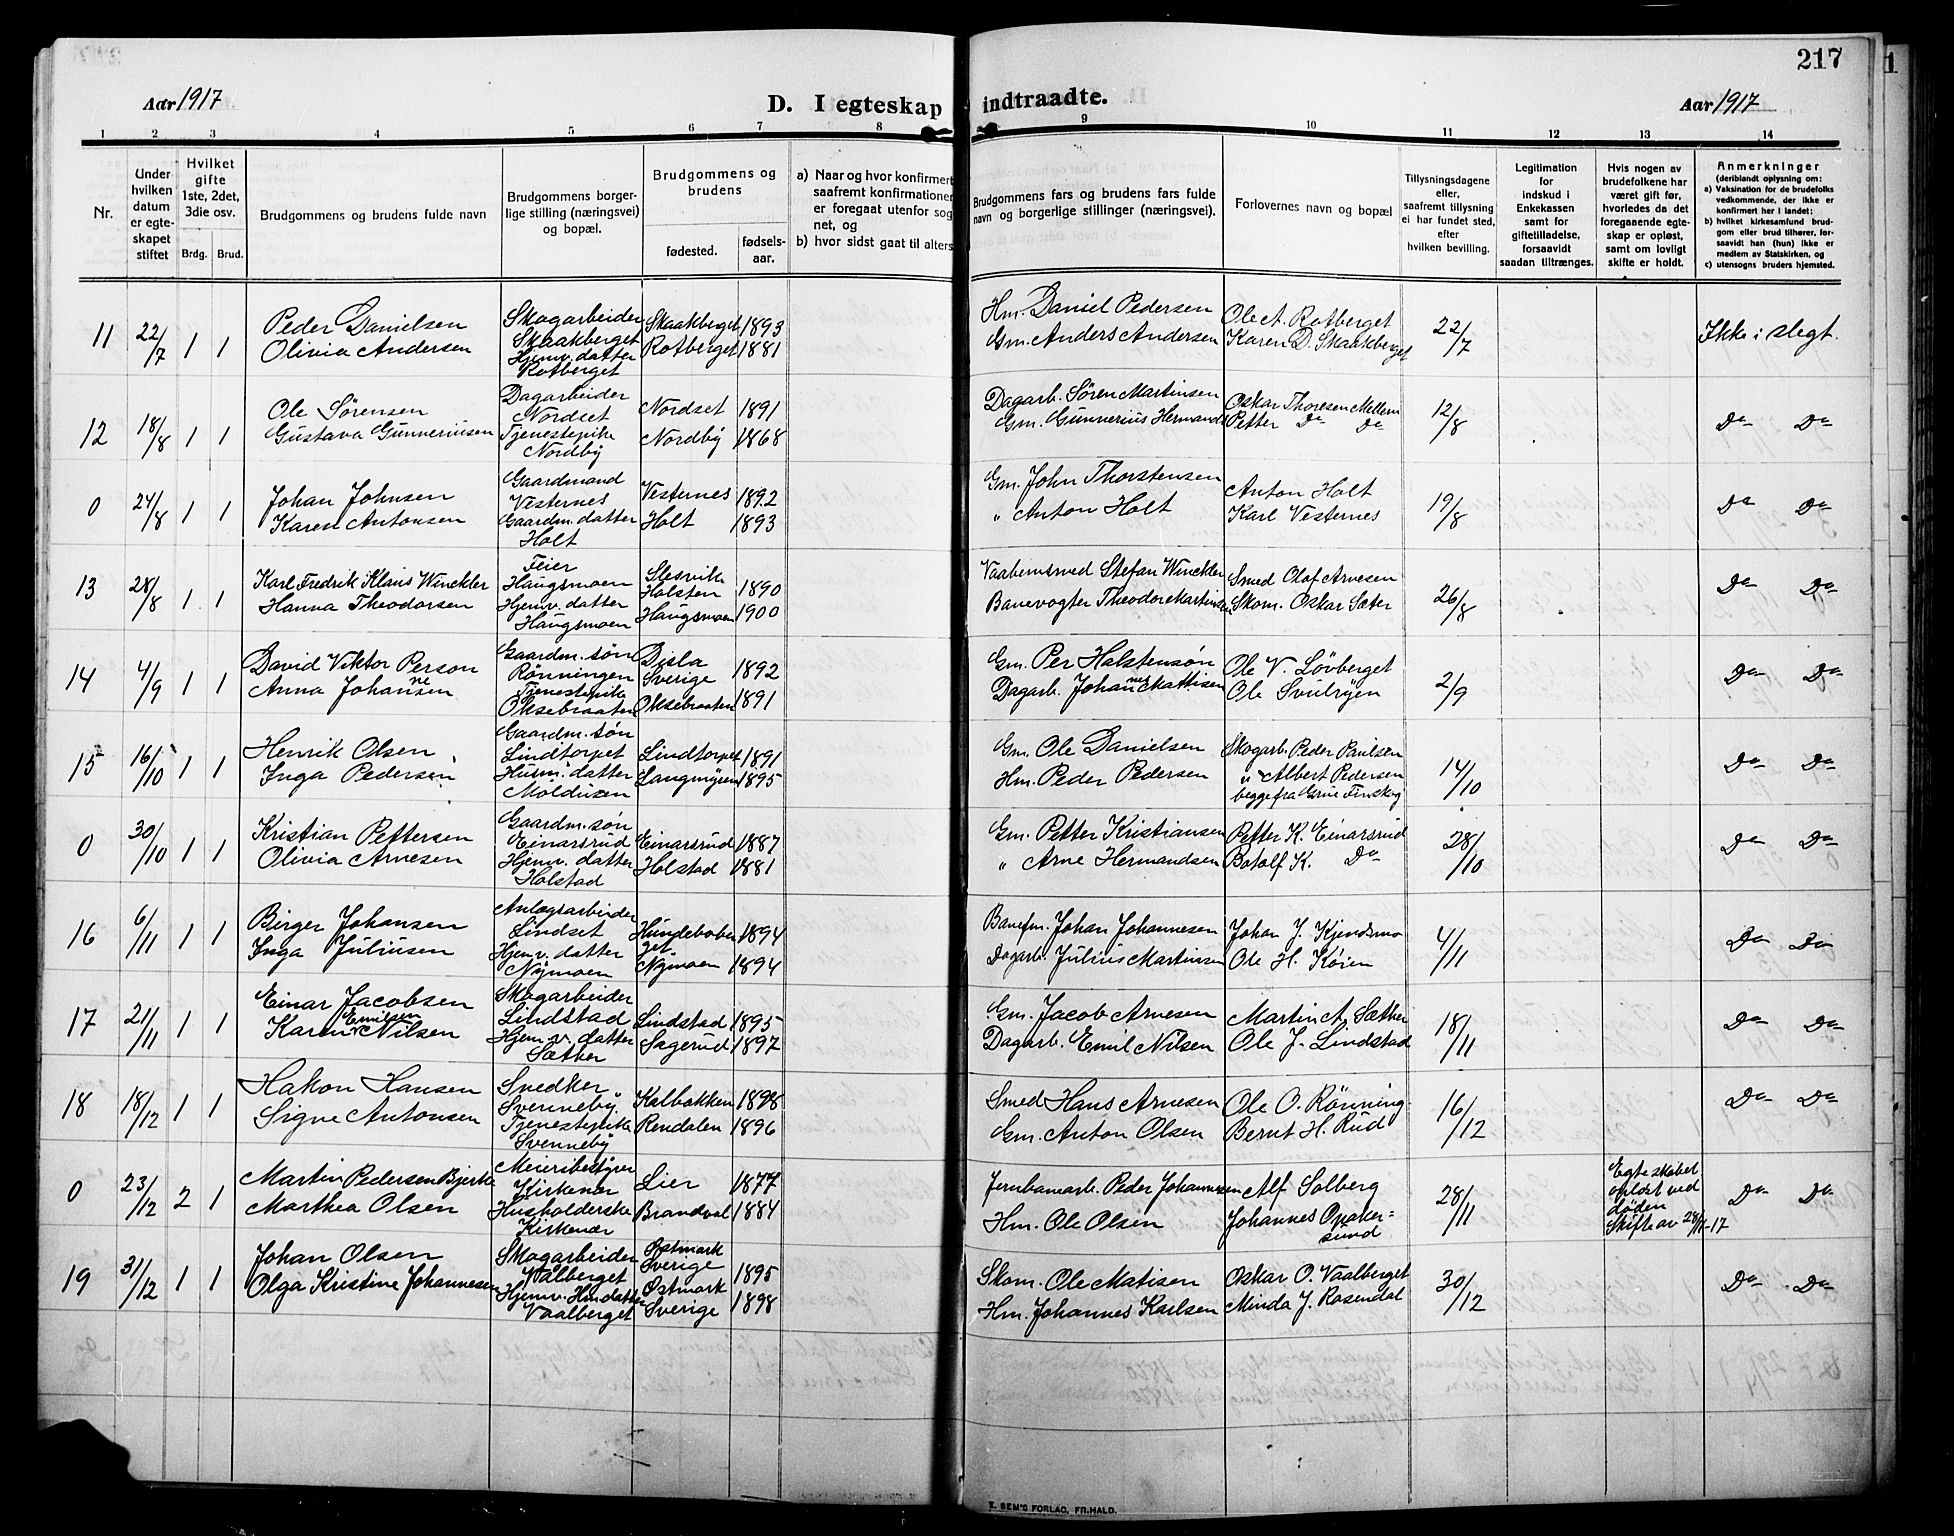 217
Aar 1917
D. I egteskap indtraadte.
Aar 1917
1 2 3 4 5 6 7 8 9 10 11 12 13 14
Nr.
Under hvilken datum er egteskapet stiftet
Hvilket gifte 1ste, 2det, 3die osv.
Brdg. Brud.
Brudgommens og brudens fulde navn
Brudgommens borgerlige stilling (næringsvei) og bopæl.
Brudgommens og brudens
fødested.
fødselsaar.
a) Naar og hvor konfirmert saafremt konfirmationen er foregaat utenfor sognet, og
b) hvor sidst gaat til alters
Brudgommens fars og brudens fars fulde navn og borgerlige stillinger (næringsvei).
Forlovernes navn og bopæl
Tillysningsdagene eller, saafremt tillysning ei har fundet sted, efter hvilken bevilling.
Legitimation for indskud i Enkekassen samt for giftetilladelse, forsaavidt saadan tiltrænges.
Hvis nogen av brudefolkene har været gift før, hvorledes da det foregaaende egteskap er opløst, samt om lovligt skifte er holdt.
Anmerkninger
(deriblandt oplysning om:
a) Vaksination for de brudefolks vedkommende, der ikke er konfirmert her i landet;
b) hvilket kirkesamfund brudgom eller brud tilhører, forsaavidt han (hun) ikke er medlem av Statskirken, og
c) utensogns bruders hjemsted.
11 22/7 1 1 Peder Danielsen Skogarbeider Skaakberget Skaakberget 1893 Hm. Daniel Pedersen Ole A. Rotberget 22/7 Ikke i slegt.
Olivia Andersen Hjemv. datter Rotberget Rotberget 1881 Gm. Anders Andersen Karen D. Skaakberget
12 18/8 1 1 Ole Sørensen Dagarbeider Nordset Nordset 1891 Dagarb. Søren Martinsen Oskar Thoresen Mellem 12/8 Do Do
Gustava Gunneriusen Tjenestepike Nordby Nordby 1868 Gm. Gunnerius Hermands Petter Do Do
0 24/8 1 1 Johan Johnsen Gaardmand Vesternes Vesternes 1892 Gm. John Thorstensen Anton Holt 19/8 Do Do
Karen Antonsen Gaardm. datter Holt Holt 1893 " Anton Holt Karl Vesternes
13 28/8 1 1 Karl Fredrik Klaus Winckler Feier Haugsmoen Slesvik Holsten 1890 Vaabensmed Stefan Winckler Smed Olof Arnesen 26/8 Do Do
Hanna Theodorsen Hjemv. datter Haugsmoen Haugsmoen 1900 Banevogter Theodor Martinsen Skom. Oskar Sæter
14 4/9 1 1 David Viktor Person Gaardm. søn Rönningen Disla Sverige 1892 Gm. Per Halstensøn Ole V. Lövberget 2/9 Do Do
Anna Johannesen Tjenestepike Oksebraaten Oksebraaten 1891 Dagarb. Johannes Mattisen Ole Svulryen
15 16/10 1 1 Henrik Olsen Gaardm. søn Lindtorpet Lindtorpet 1891 Gm. Ole Danielsen Skogarb. Peder Paulsen 14/10 Do Do
Inga Pedersen Husm. datter Moldusen Langmyren 1895 Hm. Peder Pedersen " Albert Pedersen
begge fra Grue Finskog
0 30/10 1 1 Kristian Pettersen Gaardm. søn Einarsrud Einarsrud 1887 Gm. Petter Kristiansen Petter K. Einarsrud 28/10 Do Do
Olivia Arnesen Hjemv. datter Holstad Holstad 1881 " Arne Hermandsen Botolf K. Do
16 6/11 1 1 Birger Johansen Anlægsarbeider Lindset Hundeberget 1894 Banefm. Johan Johannesen Johan J. Kjendsmo 4/11 Do Do
Inga Juliusen Hjemv. datter Nymoen Nymoen 1894 Dagarb. Julius Martinsen Ole H. Köien
17 21/11 1 1 Einar Jacobsen Skogarbeider Lindstad Lindstad 1895 Gm. Jacob Arnesen Martin A. Sæther 18/11 Do Do
Karen Emilsen Nilsen Hjemv. datter Sæther Sagerud 1897 Dagarb. Emil Nilsen Ole J. Lindstad
18 18/12 1 1 Hakon Hansen Svedker Svenneby Kalbakken 1898 Smed Hans Arnesen Ole O. Rönning 16/12 Do Do
Signe Antonsen Tjenestepike Svenneby Rendalen 1896 Gm. Anton Olsen Bernt H. Rud
0 23/12 2 1 Martin Pedersen Bjerke Meieribestyrer Kirkenær Lier 1877 Jernbanearb. Peder Johannesen Alf Solberg 28/11 Egteskabet opløst ved døden Skifte av 28/11-17 Do Do
Marthea Olsen Husholderske Kirkenær Brandval 1884 Hm. Ole Olsen Johannes Opakersund
19 31/12 1 1 Johan Olsen Skogarbeider Vålberget Østmark Sverige 1895 Skom. Ole Matisen Oskar O. Vaalberget 30/12 Do Do
Olga Kristine Johannesen Hjemv. Hm datter Vaalberget Østmark Sverige 1898 Hm. Johannes Karlsen Minda J. Rosendal
E. SEM'S FORLAG, FR.HALD.